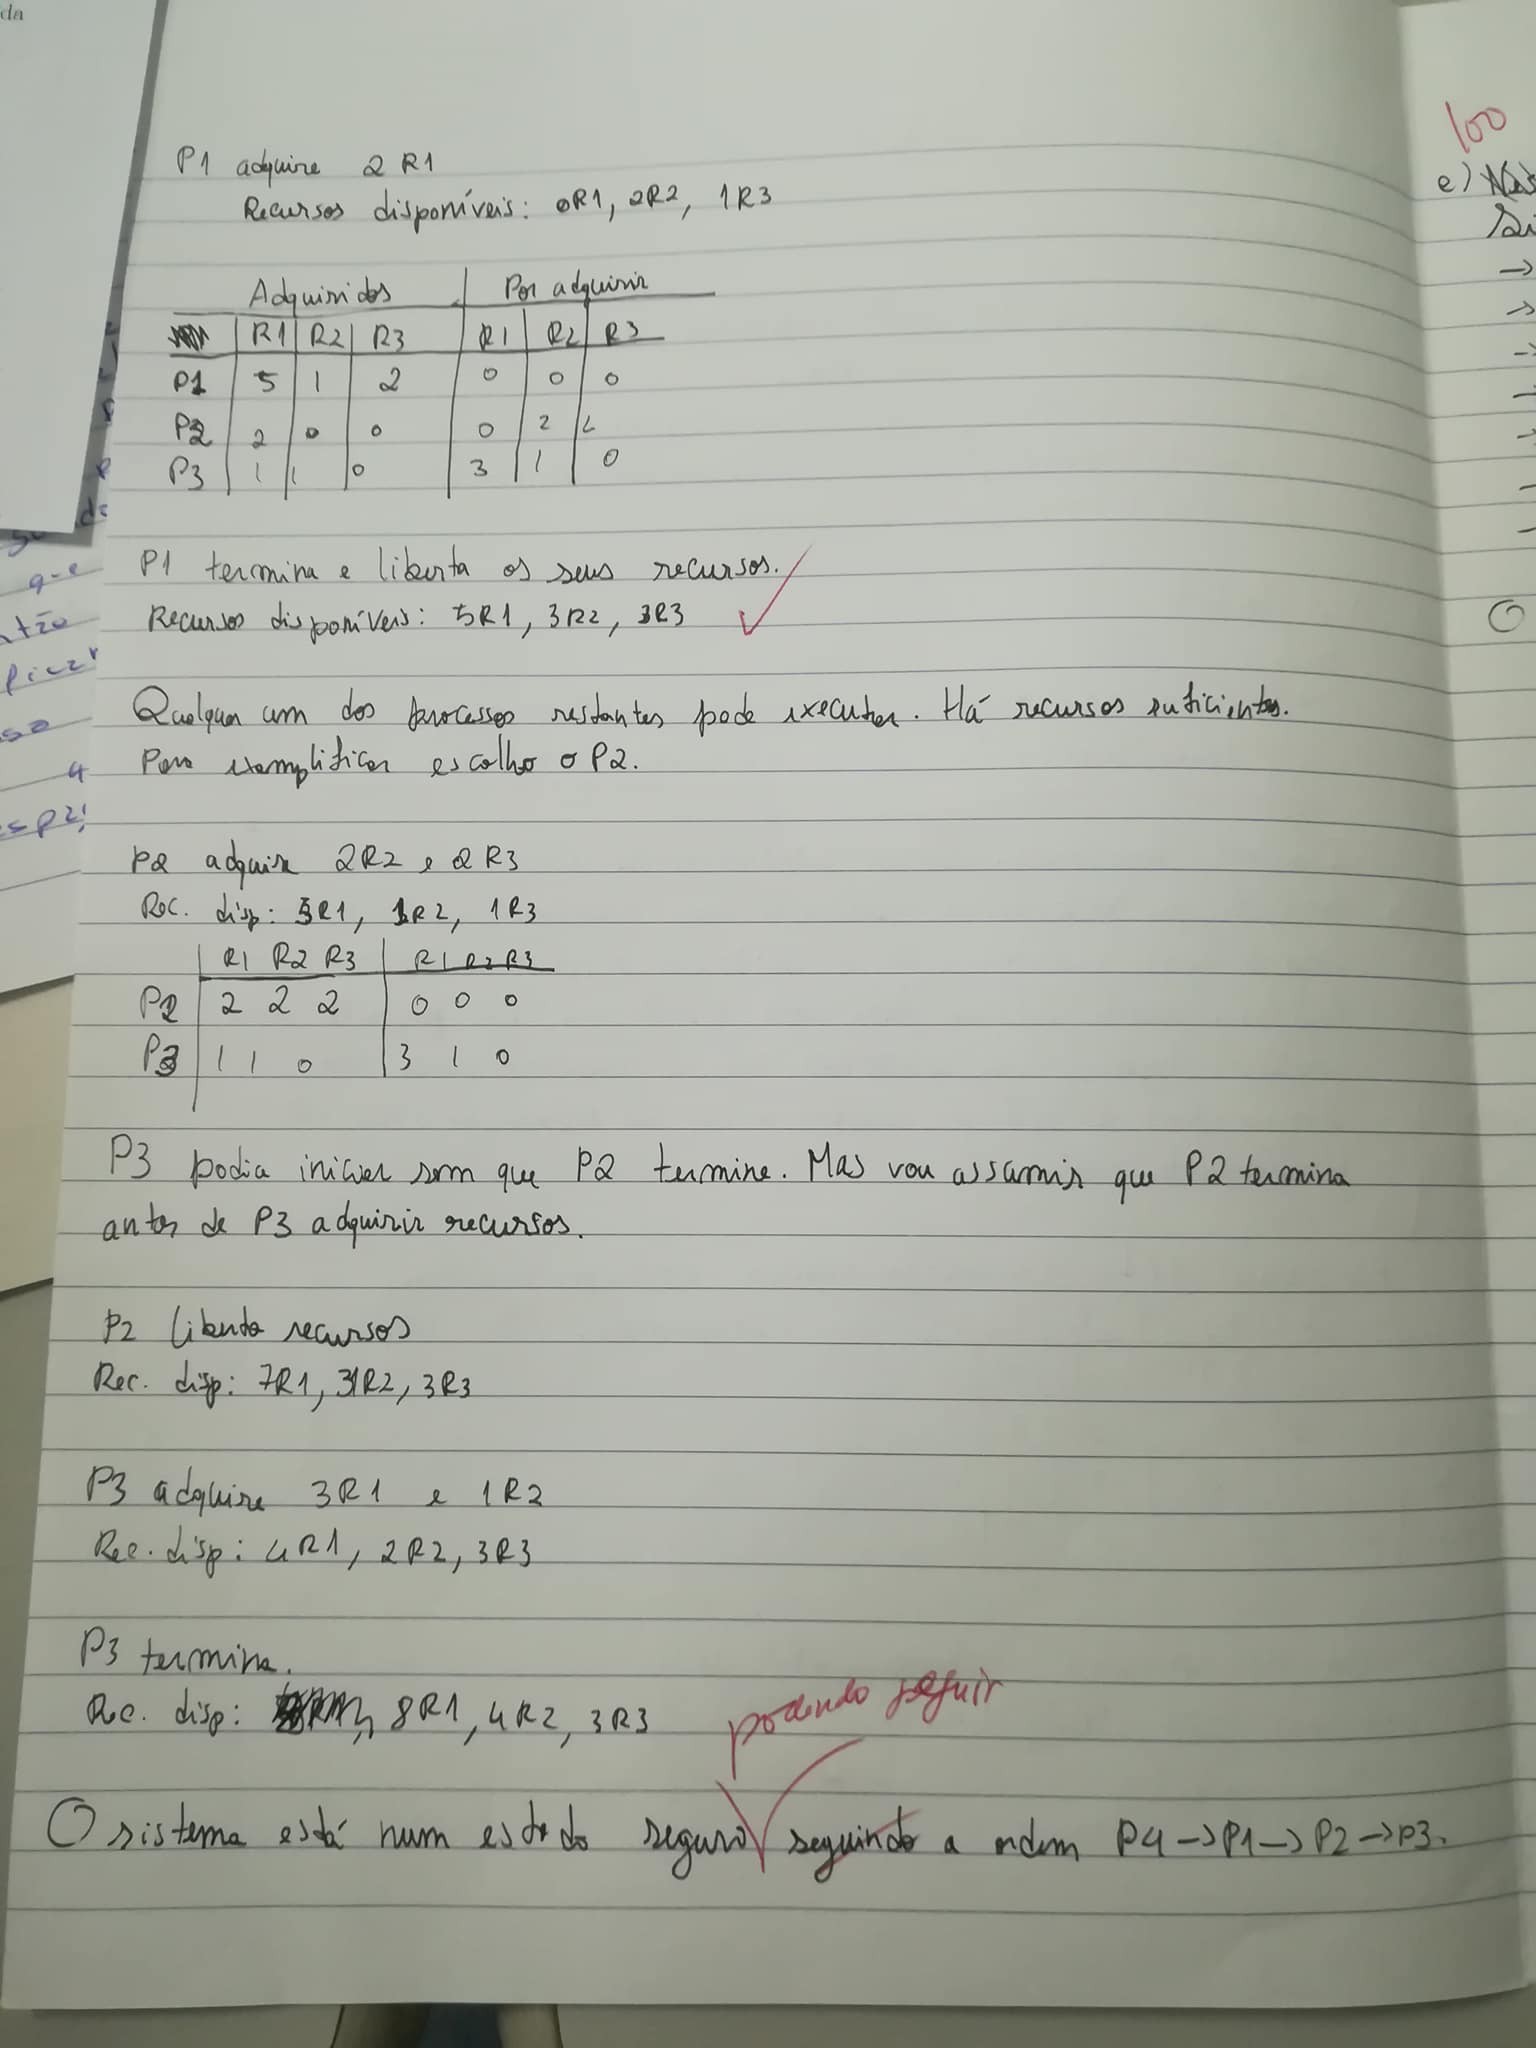 da
P1 adquire 2 R1
Recursos disponíveis: 0R1, 2R2, 1R3
Adquiridos Por adquirir
R1 R2 R3 R1 R2 R3
P1 5 1 2 0 0 0
P2 2 0 0 0 2 2
P3 1 1 0 3 1 0
P1 termina e liberta os seus recursos.
Recursos disponíveis: 5R1, 3R2, 3R3
Qualquer um dos processos restantes pode executar. Há recursos suficientes.
Para exemplificar escolho o P2.
P2 adquire 2R2 e 2R3
Rec. disp: 5R1, 1R2, 1R3
R1 R2 R3 R1 R2 R3
P2 2 2 2 0 0 0
P3 1 1 0 3 1 0
P3 podia iniciar sem que P2 termine. Mas vou assumir que P2 termina
antes de P3 adquirir recursos.
P2 liberta recursos
Rec. disp: 7R1, 3R2, 3R3
P3 adquire 3R1 e 1R2
Rec. disp: 4R1, 2R2, 3R3
P3 termina.
Rec. disp: 8R1, 4R2, 3R3
podendo seguir
O sistema está num estado seguro seguindo a ordem P4 -> P1 -> P2 -> P3.
que
100
e)